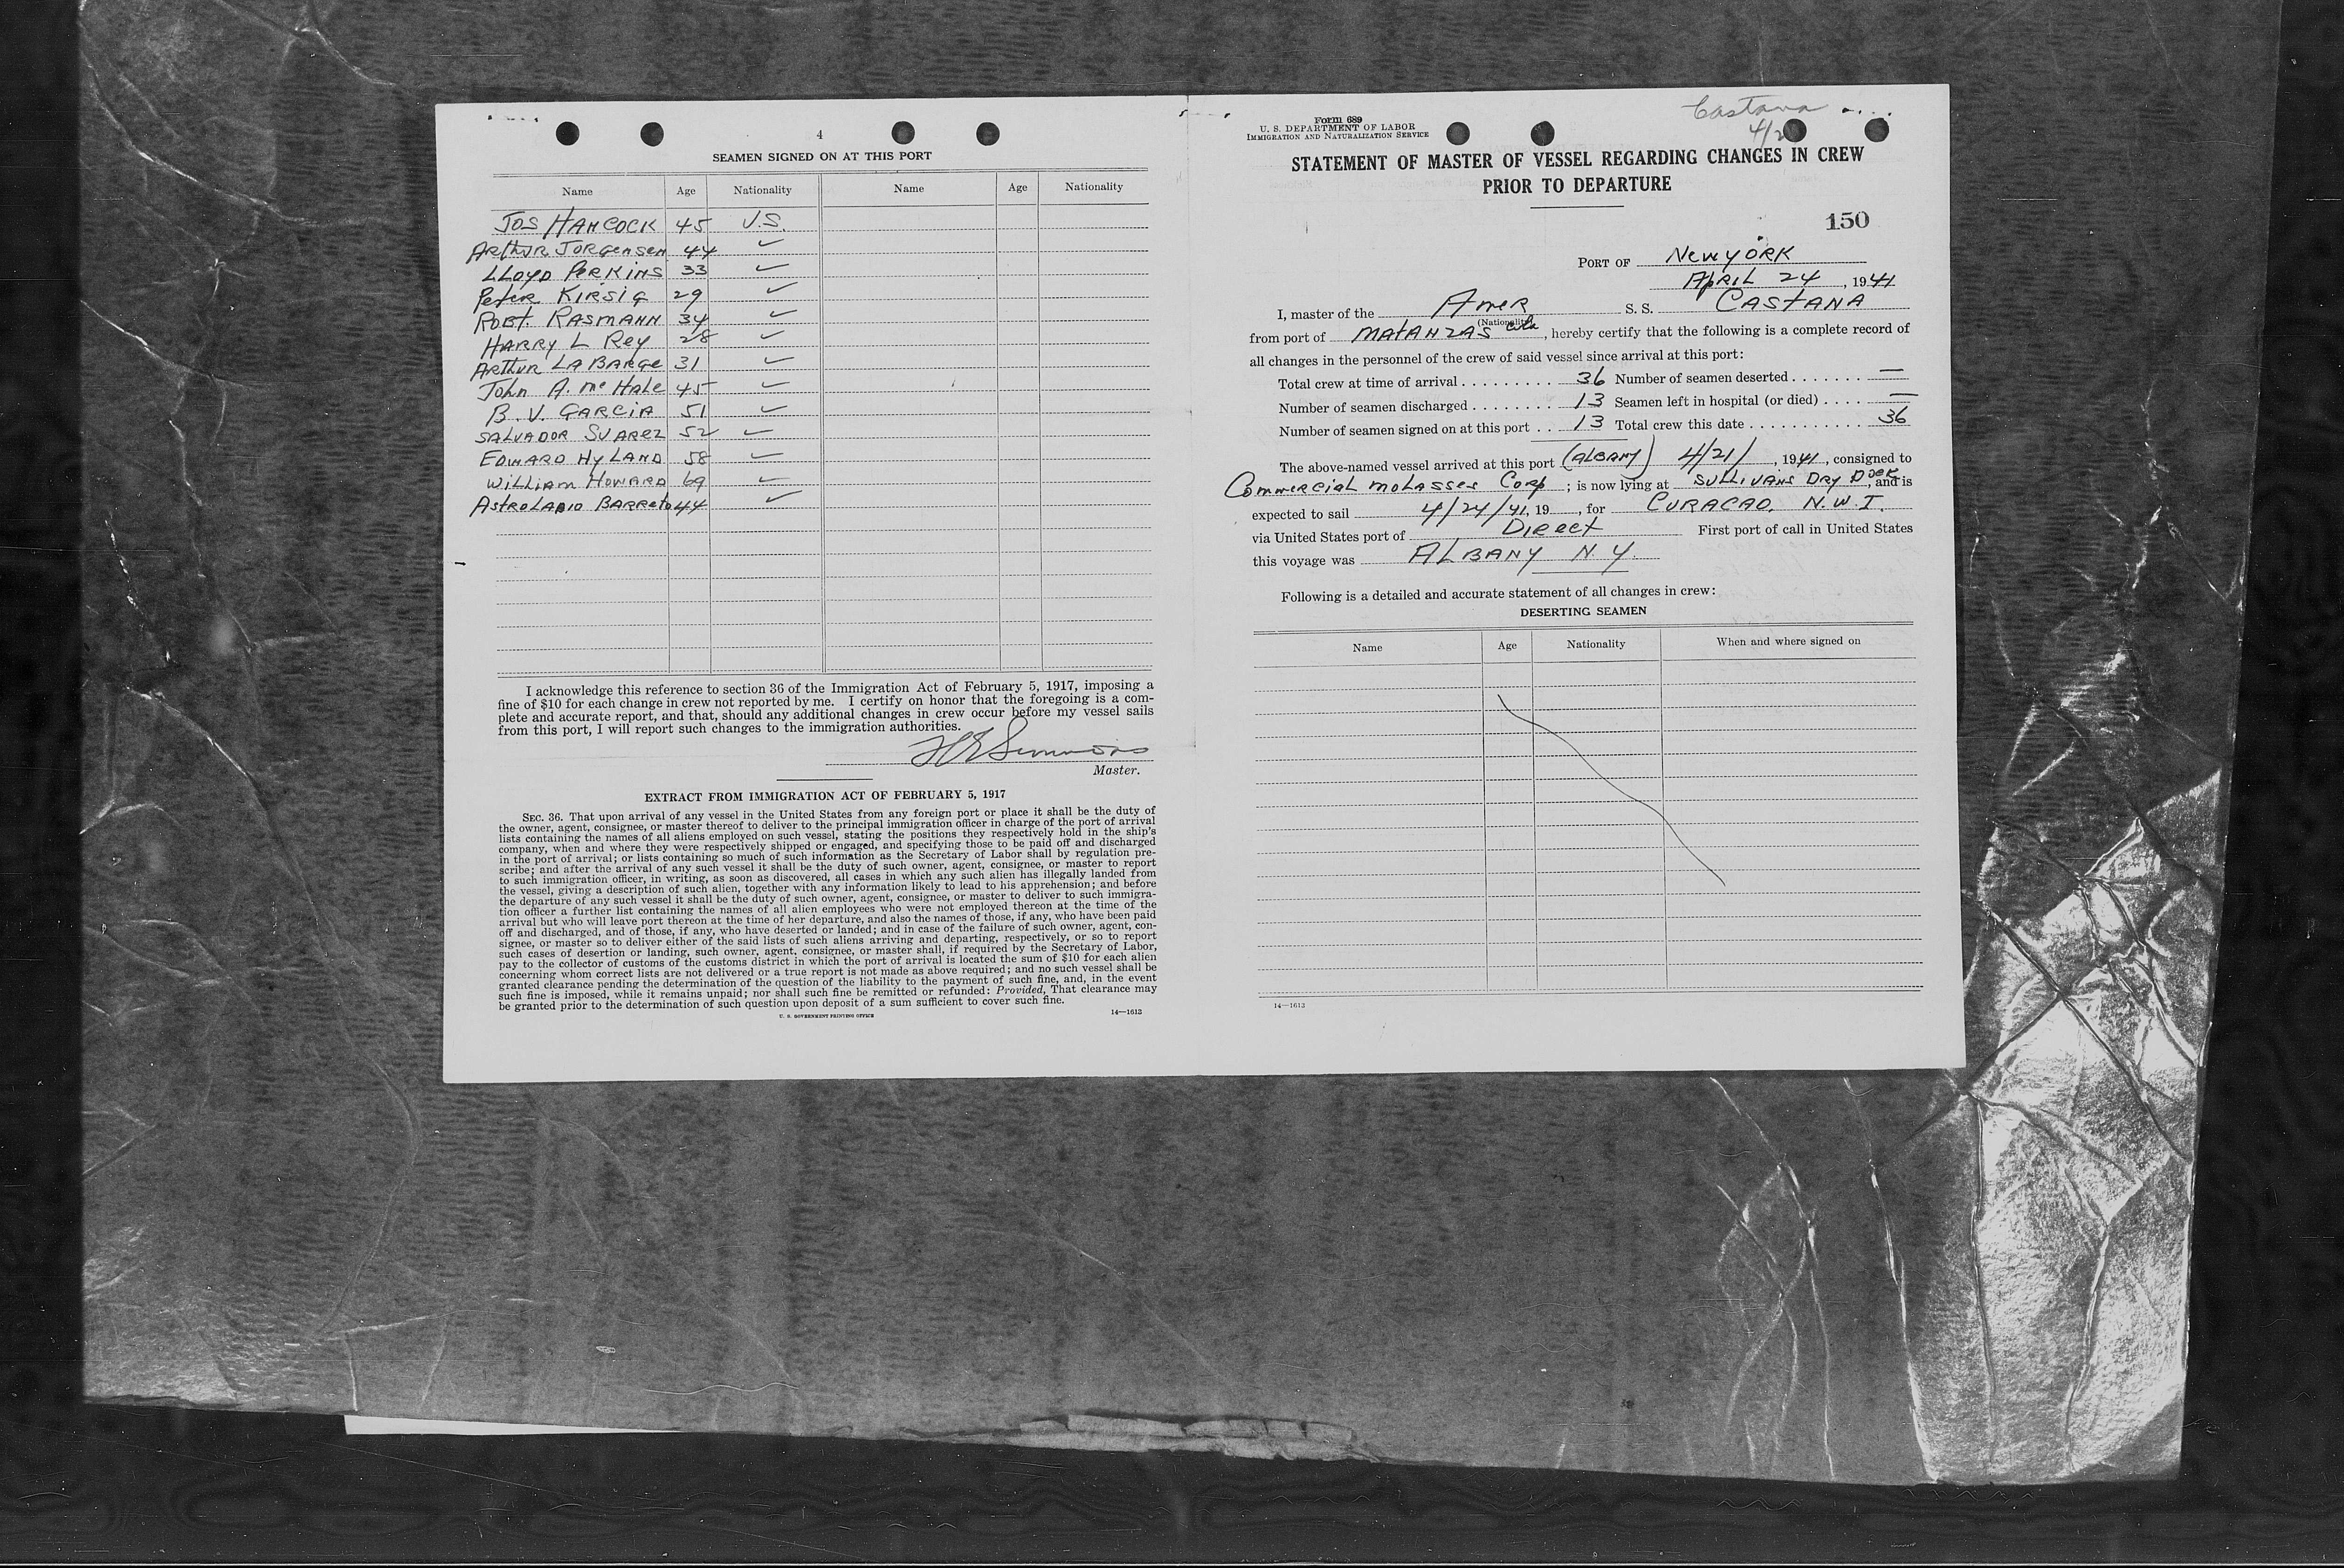 4
SEAMEN SIGNED ON AT THIS PORT
Name Age Nationality Name Age Nationality
JOS HANCOCK 45 U.S.
ARTHUR JORGENSEN 44 ✓
LLOYD PERKINS 33 ✓
PETER KIRSIG 29 ✓
ROBT. RASMANN 34 ✓
HARRY L REY 28 ✓
ARTHUR LABARGE 31 ✓
JOHN A. McHALE 45 ✓
B. V. GARCIA 51 ✓
SALVADOR SUAREZ 52 ✓
EDWARD HYLAND 58 ✓
WILLIAM HOWARD 69 ✓
ASTROLADIO BARRETO 44 ✓
I acknowledge this reference to section 36 of the Immigration Act of February 5, 1917, imposing a
fine of $10 for each change in crew not reported by me. I certify on honor that the foregoing is a com-
plete and accurate report, and that, should any additional changes in crew occur before my vessel sails
from this port, I will report such changes to the immigration authorities.
Simmons
Master.
EXTRACT FROM IMMIGRATION ACT OF FEBRUARY 5, 1917
SEC. 36. That upon arrival of any vessel in the United States from any foreign port or place it shall be the duty of
the owner, agent, consignee, or master thereof to deliver to the principal immigration officer in charge of the port of arrival
lists containing the names of all aliens employed on such vessel, stating the positions they respectively hold in the ship's
company, when and where they were respectively shipped or engaged, and specifying those to be paid off and discharged
in the port of arrival; or lists containing so much of such information as the Secretary of Labor shall by regulation pre-
scribe; and after the arrival of any such vessel it shall be the duty of such owner, agent, consignee, or master to report
to such immigration officer, in writing, as soon as discovered, all cases in which any such alien has illegally landed from
the vessel, giving a description of such alien, together with any information likely to lead to his apprehension; and before
the departure of any such vessel it shall be the duty of such owner, agent, consignee, or master to deliver to such immigra-
tion officer a further list containing the names of all alien employees who were not employed thereon at the time of the
arrival but who will leave port thereon at the time of her departure, and also the names of those, if any, who have been paid
off and discharged, and of those, if any, who have deserted or landed; and in case of the failure of such owner, agent, con-
signee, or master so to deliver either of the said lists of such aliens arriving and departing, respectively, or so to report
such cases of desertion or landing, such owner, agent, consignee, or master shall, if required by the Secretary of Labor,
pay to the collector of customs of the customs district in which the port of arrival is located the sum of $10 for each alien
concerning whom correct lists are not delivered or a true report is not made as above required; and no such vessel shall be
granted clearance pending the determination of the question of the liability to the payment of such fine, and, in the event
such fine is imposed, while it remains unpaid; nor shall such fine be remitted or refunded: Provided, That clearance may
be granted prior to the determination of such question upon deposit of a sum sufficient to cover such fine.
U. S. GOVERNMENT PRINTING OFFICE 14—1613
Castana
Form 689
U. S. DEPARTMENT OF LABOR
IMMIGRATION AND NATURALIZATION SERVICE
STATEMENT OF MASTER OF VESSEL REGARDING CHANGES IN CREW
PRIOR TO DEPARTURE
150
PORT OF NEW YORK
APRIL 24, 1941
I, master of the Amer S. S. CASTANA
(Nationality)
from port of MATANZAS Cuba, hereby certify that the following is a complete record of
all changes in the personnel of the crew of said vessel since arrival at this port:
Total crew at time of arrival . . . . . . . . . 36 Number of seamen deserted . . . . . . . —
Number of seamen discharged . . . . . . . 13 Seamen left in hospital (or died) . . . . —
Number of seamen signed on at this port . . 13 Total crew this date . . . . . . . . . . . 36
The above-named vessel arrived at this port (ALBANY) 4/21/, 1941, consigned to
Commercial Molasses Corp; is now lying at SULLIVANS DRY DOCK, and is
expected to sail 4/24/41, 19 , for CURACAO. N.W.I.
via United States port of DIRECT First port of call in United States
this voyage was ALBANY N.Y.
Following is a detailed and accurate statement of all changes in crew:
DESERTING SEAMEN
Name Age Nationality When and where signed on
14—1613